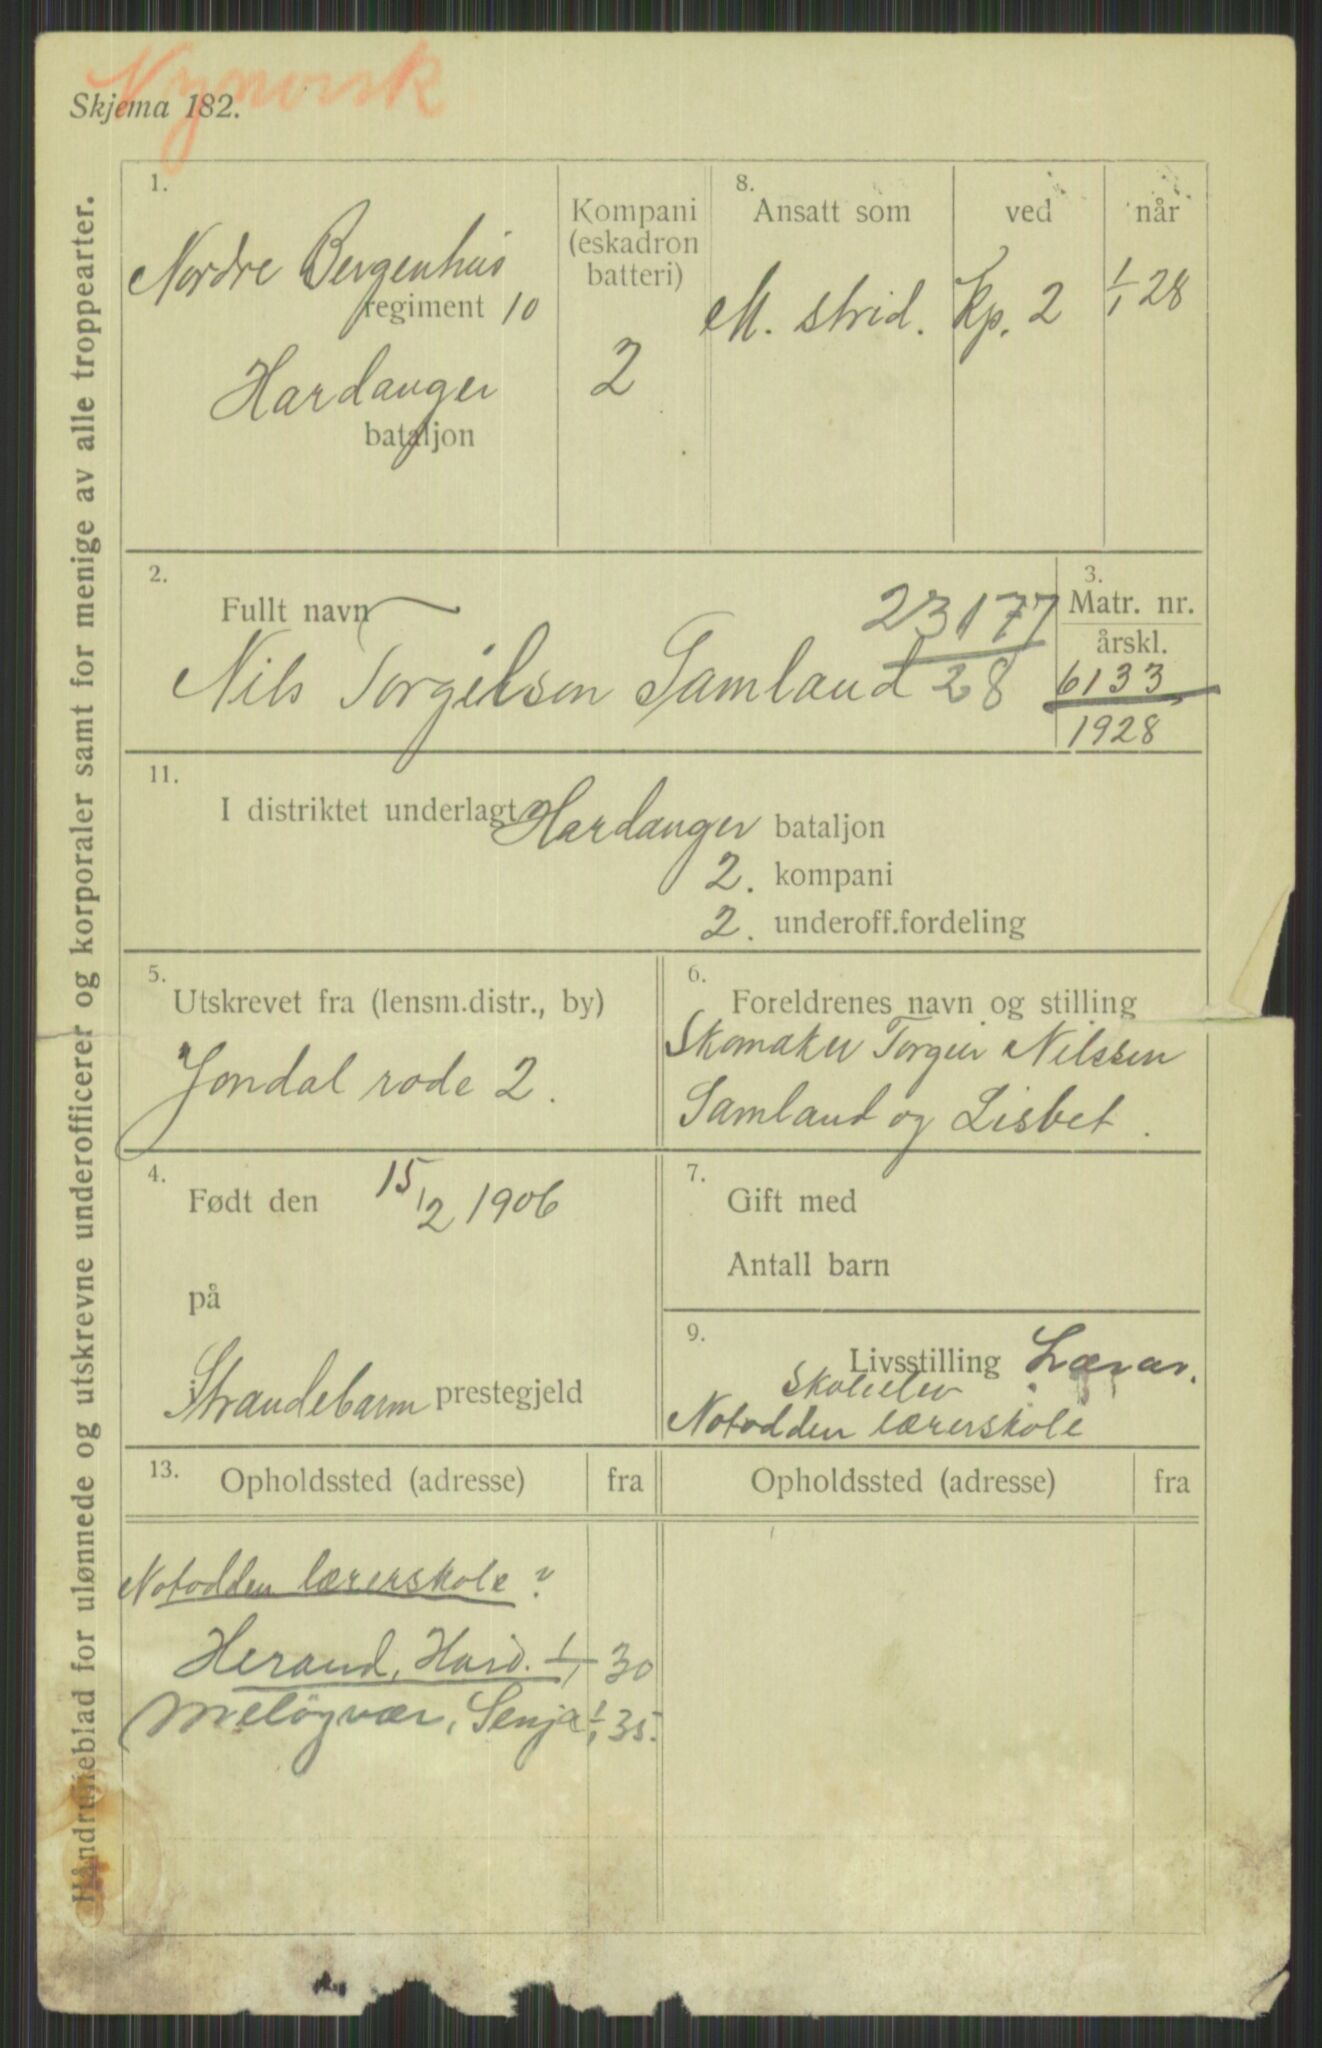 Nynorsk
Skjema 182.
Håndrulleblad for ulønnede og utskrevne underofficerer og korporaler samt for menige av alle troppearter.
1.
Nordre Bergenhus
regiment 10
Hardanger
bataljon
Kompani
(eskadron
batteri)
2
8.
Ansatt som
ved
når
M. strid.
Kp. 2
1/1 28
2.
Fullt navn
23177
28
Nils Torgilson Samland
3.
Matr. nr.
årskl.
6133
1928
11.
I distriktet underlagt Hardanger bataljon
2. kompani
2. underoff.fordeling
5.
Utskrevet fra (lensm.distr., by)
Jondal rode 2.
6.
Foreldrenes navn og stilling
Skomaker Torgeir Nilssen
Samland og Lisbet.
4.
Født den 15/2 1906
på
Strandebarm prestegjeld
7.
Gift med
Antall barn
9.
Livsstilling Lærar.
Skoleelev
Notodden lærerskole
13.
Opholdssted (adresse)
fra
Opholdssted (adresse)
fra
Notodden lærerskole ?
Herand, Hard. 1/1 30
Meløyvær, Senja 1/1 35.